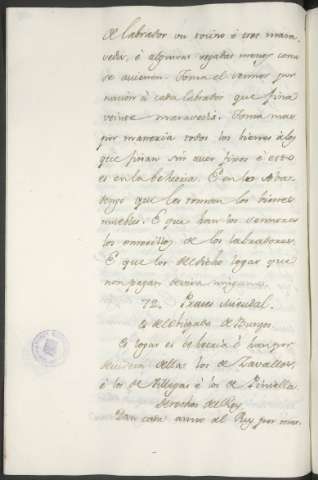 de labrador un tocino è tres mara-
vedis, è algunas vegadas menos como
se avienen. Toma el
nacion à cada labrador que fina
veinte maravedis. Toma mas
por manera todos los bienes à los
que finan sin aver fijos è esto
es en la behetria. E en lo Aba-
dengo que les toman los bienes
muebles. E que han los
los de los labradores.
E que los del dicho logar que
non pagan devisa ninguna.
72.
Es del Obispado de Burgos.
E logar es behetria è han por
della los de Zavallos,
è los de Villegas è los de
derechos del Rey
Dan cada anno al Rey por